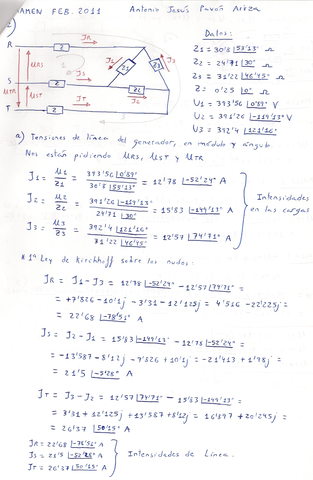 EXAMEN FEB. 2011 Antonio Jesús Pavón Ariza
R
S
T
Z
Z
Z
JR
JS
JT
J1
J2
J3
Z1
Z2
Z3
URS
UST
UTR
Datos:
Z1 = 30'8 |55'13° Ω
Z2 = 24'71 |30° Ω
Z3 = 31'22 |46'45° Ω
Z = 0'25 |0° Ω
U1 = 393'56 |0'89° V
U2 = 391'26 |-119'13° V
U3 = 392'4 |121'16°
a) Tensiones de línea del generador, en módulo y ángulo.
Nos están pidiendo URS, UST y UTR
J1 = U1/Z1 = 393'56 |0'89° / 30'8 |55'13° = 12'78 |-52'24° A
J2 = U2/Z2 = 391'26 |-119'13° / 24'71 |30° = 15'83 |-149'13° A
J3 = U3/Z3 = 392'4 |121'16° / 31'22 |46'45° = 12'57 |74'71° A
Intensidades en las cargas
* 1ª Ley de Kirchhoff sobre los nudos:
JR = J1 - J3 = 12'78 |-52'24° - 12'57 |74'71° =
= +7'826 - 10'1j - 3'31 - 12'125j = 4'516 - 22'225j =
= 22'68 |-78'51° A
JS = J2 - J1 = 15'83 |-149'13° - 12'78 |-52'24° =
= -13'587 - 8'12j - 7'826 + 10'1j = -21'413 + 1'98j =
= 21'5 A
JT = J3 - J2 = 12'57 |74'71° - 15'83 |-149'13° =
= 3'31 + 12'125j + 13'587 + 8'12j = 16'897 + 20'245j =
= 26'37 |50'15° A
JR = 22'68 |-78'51° A
JS = 21'5 A
JT = 26'37 |50'15° A
Intensidades de Línea.